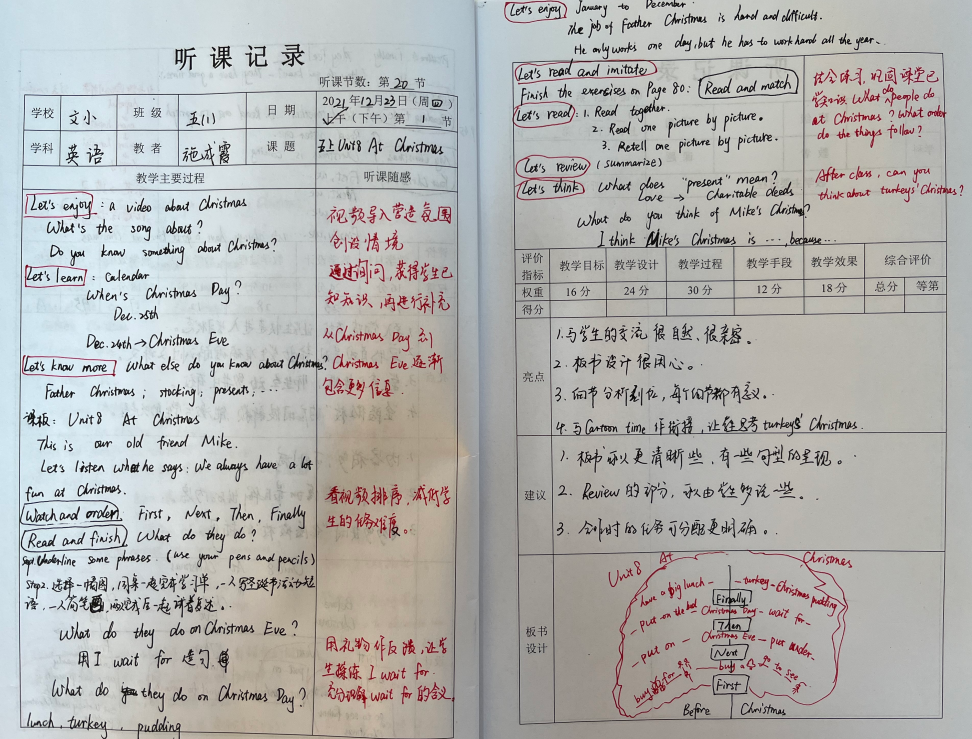 听课记录
听课节数：第 20 节
学校 文小 班级 五(1) 日期 2021年12月23日(周四)
上午（下午）第 1 节
学科 英语 教者 施成霞 课题 五上Unit8 At Christmas
教学主要过程 听课随感
Let's enjoy : a video about Christmas
What's the song about?
Do you know something about Christmas?
Let's learn : calendar
When's Christmas Day?
Dec. 25th
Dec. 24th → Christmas Eve
Let's know more What else do you know about Christmas?
Father Christmas; stocking; presents; ...
课板: Unit 8 At Christmas
This is our old friend Mike.
Let's listen what he says: We always have a lot
fun at Christmas.
Watch and order First, Next, Then, Finally
Read and finish What do they do?
Step1. Underline some phrases. (use your pens and pencils)
Step2. 选择一幅图，同桌一起完成学习单，一人
语，一人简笔画，
What do they do on Christmas Eve?
用 I wait for 造句
What do they do on Christmas Day?
lunch, turkey, pudding
视频导入营造氛围
创设情境
通过问问，获得学生已
知知识，再进行补充
从Christmas Day 到
Christmas Eve 逐渐
包含更多信息
看视频排序，减低学
生的任务难度。
用礼物作反馈，让学
生操练 I wait for
充分理解wait for 的含义。
Let's enjoy January to December
The job of Father Christmas is hard and difficult.
He only works one day, but he has to work hard all the year.
Let's read and imitate
Finish the exercises on Page 80: Read and match
Let's read : 1. Read together.
2. Read one picture by picture.
3. Retell one picture by picture.
Let's review (summarize)
Let's think What does "present" mean?
Love → Charitable deeds
What do you think of Mike's Christmas?
I think Mike's Christmas is ..., because...
结合练习，巩固课堂已
学知识 What do people do
at Christmas? What order
do the things follow?
After class, can you
think about turkeys' Christmas?
评价指标 教学目标 教学设计 教学过程 教学手段 教学效果 综合评价
权重 16分 24分 30分 12分 18分 总分 等第
得分
亮点
1. 与学生的交流很自然、很亲密。
2. 板书设计很用心。
3. 细节分析到位，每个细节都有意义。
4. 与Cartoon time 作衔接，让学生思考turkeys' Christmas.
建议
1. 板书可以更清晰些，有一些句型的呈现。
2. Review 的部分，可以由学生多说一些。
3. 合作时的任务可分配更明确。
板书设计
Unit 8 At Christmas
have a big lunch - turkey - Christmas pudding
Finally
put on the bed - Christmas Day - wait for
Then
put on - Christmas Eve - put under
Next
buy for buy a go to see
First
Before Christmas